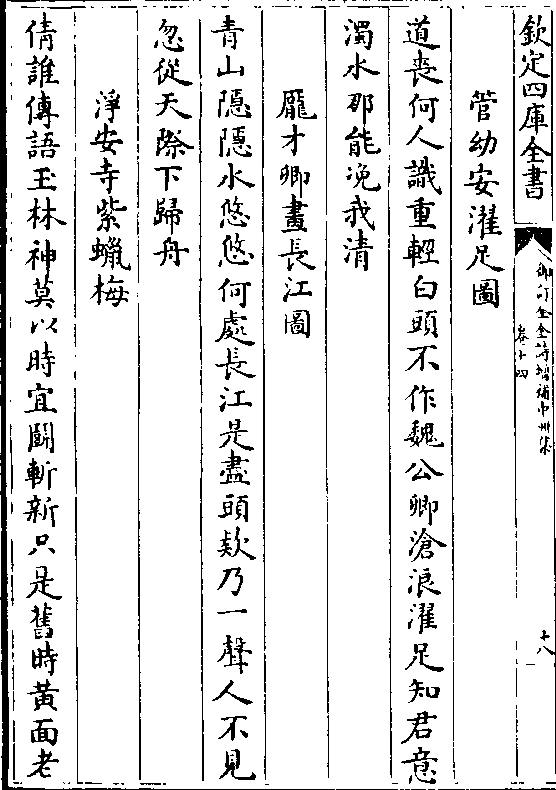 欽定四庫全書
御訂全金詩增補中州集
卷十四
十八
管幼安濯足圖
道喪何人識重輕白頭不作魏公卿滄浪濯足知君意
濁水那能浼我清
龎才卿畫長江圖
青山隠隠水悠悠何處長江是盡頭欸乃一聲人不見
忽從天際下歸舟
淨安寺紫蠟梅
倩誰傳語玉林神莫以時宜鬭斬新只是舊時黄面老